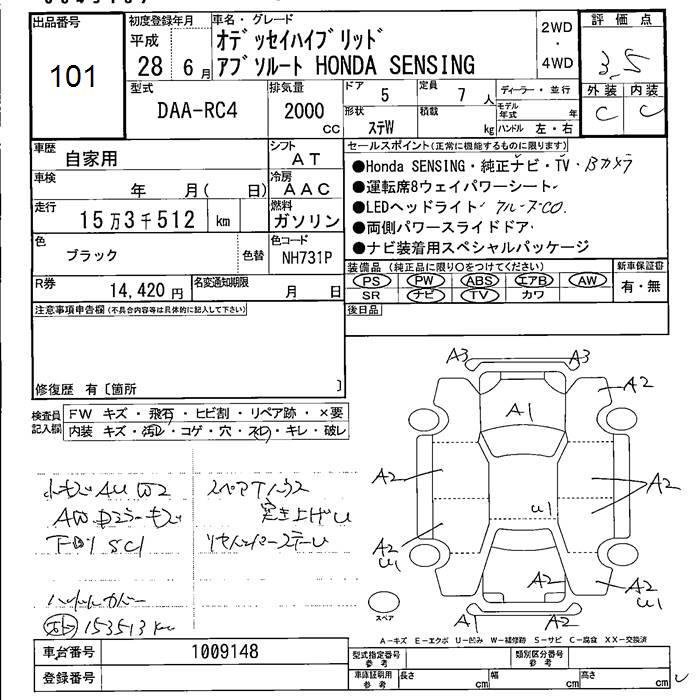 出品番号
101
初度登録年月
平成
28 6 月
車名・グレード
オデッセイハイブリッド
アブソルート HONDA SENSING
2WD
・
4WD
評価点
3.5
外装 内装
C C
型式
DAA-RC4
排気量
2000
CC
ドア 5
定員 7 人
形状 ステW
積載 kg
ディーラー・並行
モデル年式 年
ハンドル 左・右
車歴
自家用
シフト
AT
車検
年 月( 日)
冷房
AAC
走行
15万3千512 km
燃料
ガソリン
色
ブラック
色替
色コード
NH731P
R券
14,420 円
名変通知期限
月 日
セールスポイント(正常に機能するものに限ります)
●Honda SENSING・純正ナビ・TV・Bカメラ
●運転席8ウェイパワーシート
●LEDヘッドライト
●両側パワースライドドア
●ナビ装着用スペシャルパッケージ
装備品(純正品に限り○をつけてください)
PS PW ABS エアB AW
SR ナビ TV カワ
新車保証書
有・無
後日品
注意事項申告欄(不具合内容等は具体的に記入して下さい)
修復歴 有〔箇所 〕
検査員記入欄
FW キズ・飛石・ヒビ割・リペア跡・×要
内装 キズ・汚レ・コゲ・穴・スレ・キレ・破レ
スペアTハウス
突き上げU
153513km
A3 A3
A2
A1
A2
A2
U1
A2
U1
A2
A2
U1
A1 A2
スペア
A-キズ E-エクボ U-凹み W-補修跡 S-サビ C-腐食 XX-交換済
車台番号
1009148
登録番号
型式指定番号
参考
類別区分番号
参考
車庫証明用
参考
長さ cm
幅 cm
高さ cm